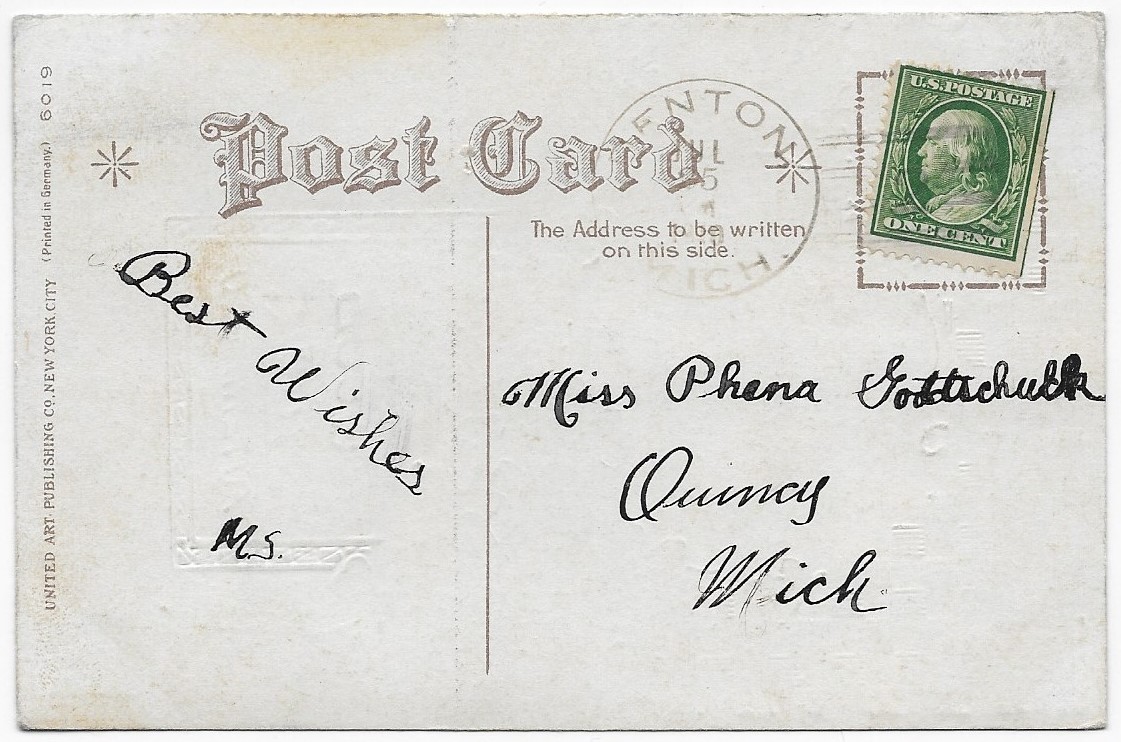 Post Card
FENTON
MICH.
U.S. POSTAGE
ONE CENT
The Address to be written
on this side.
Best Wishes
M.S.
Miss Phena
Quincy
Mich.
UNITED ART PUBLISHING CO. NEW YORK CITY (Printed in Germany.) 6019